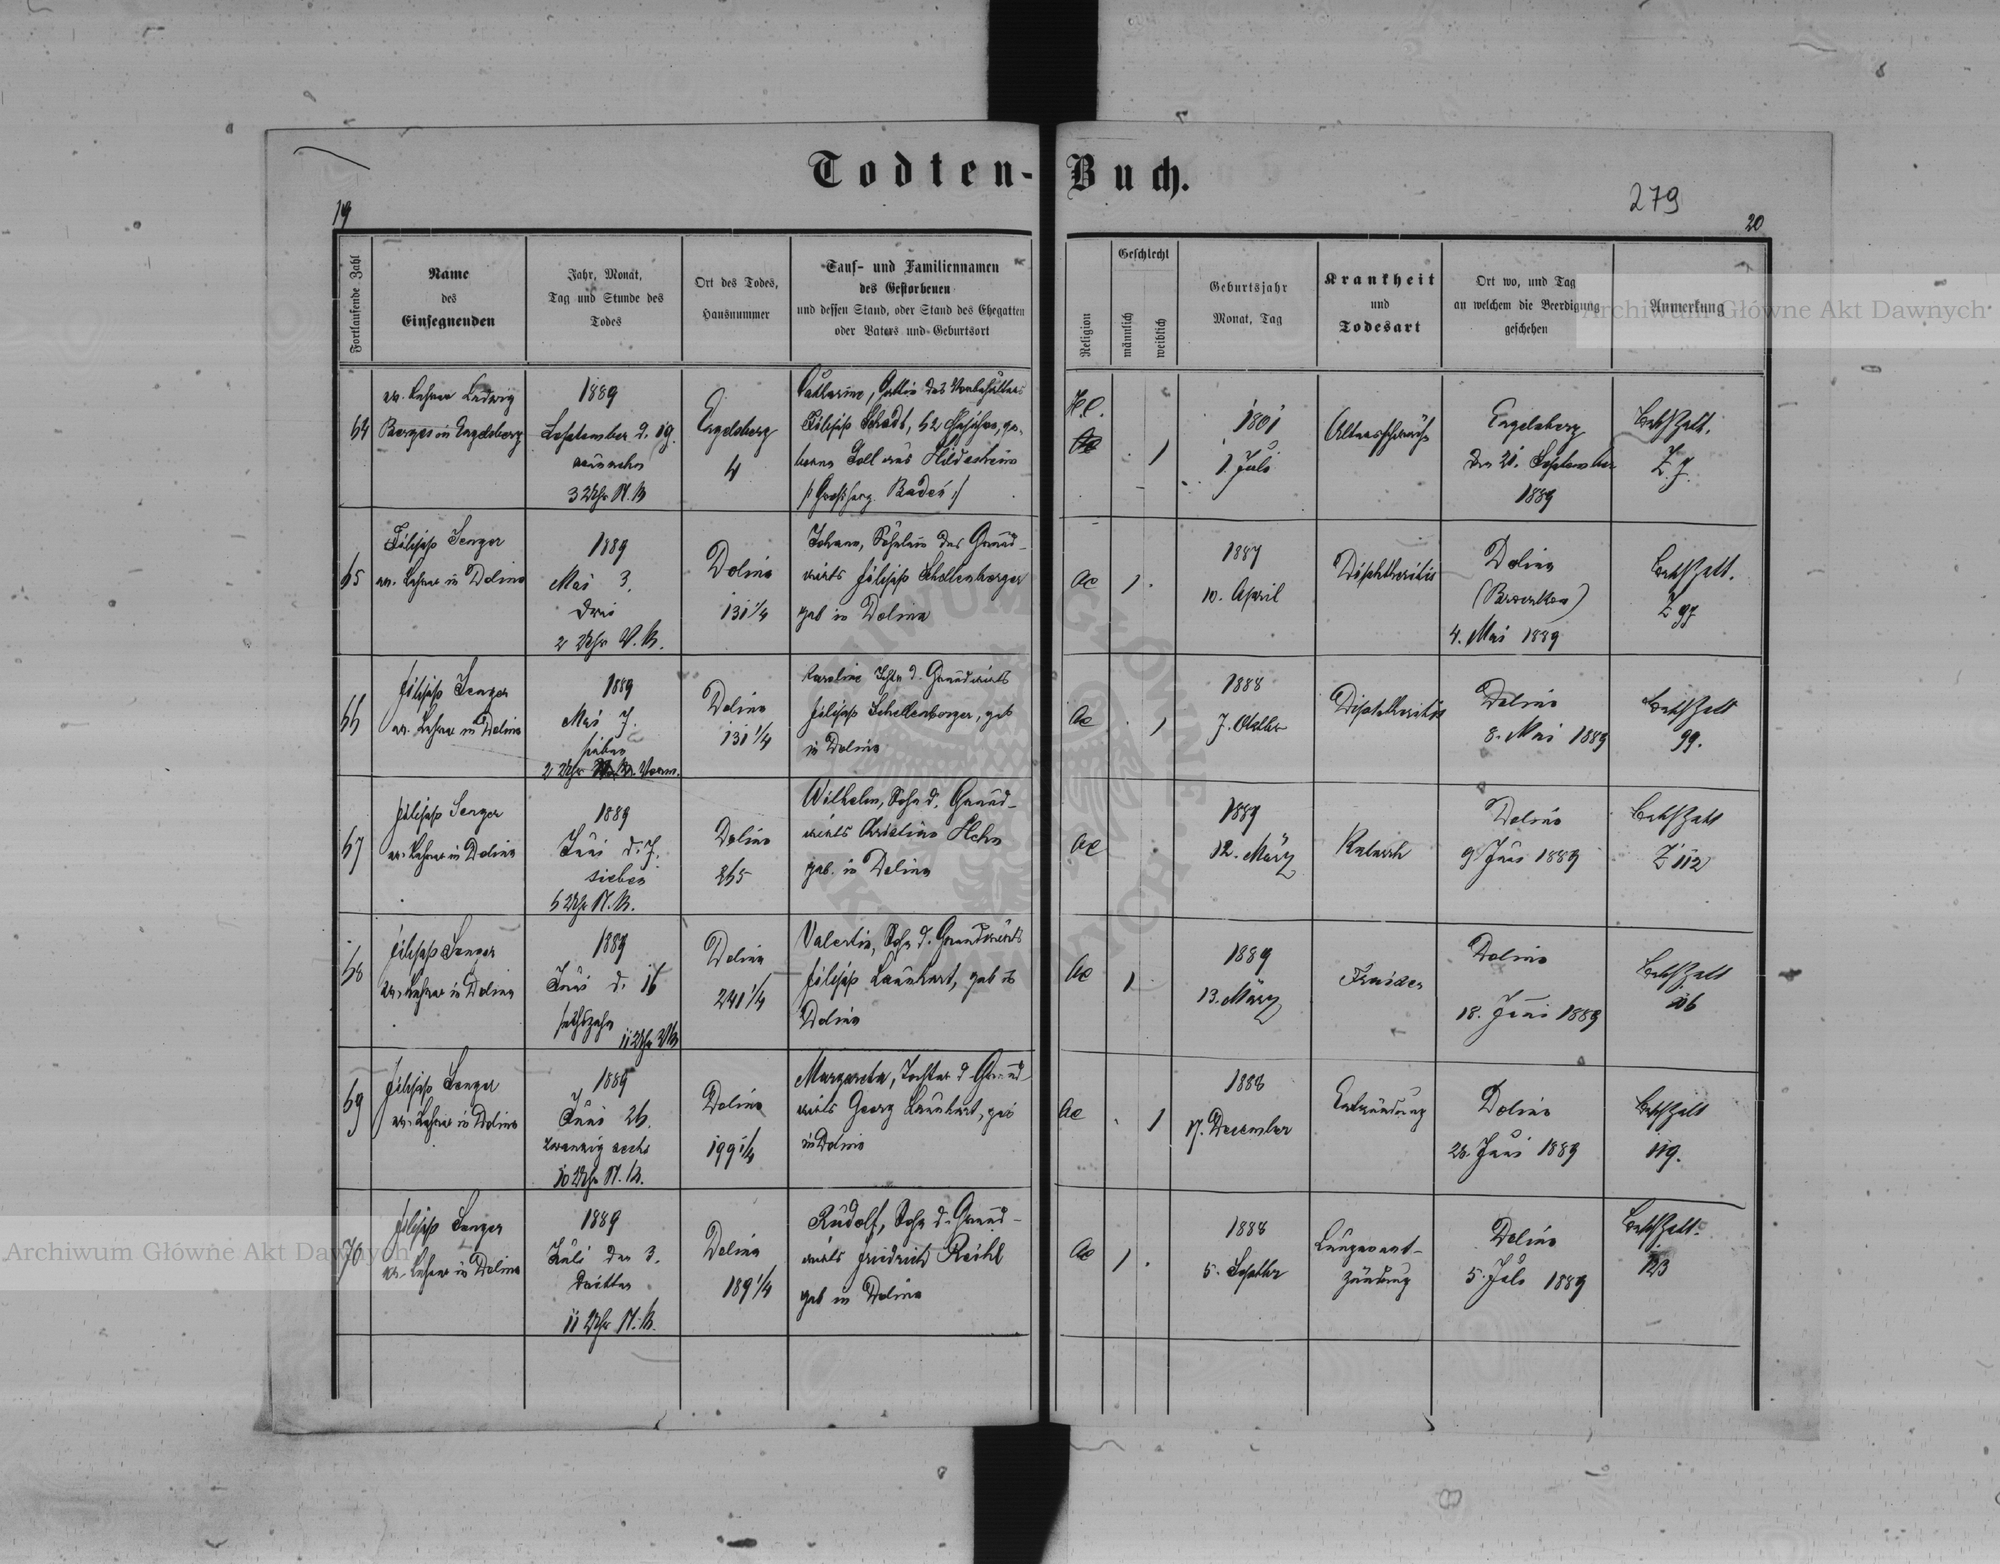 Todten-Buch.
279
19
20
Fortlaufende Zahl
Name
des
Einsegnenden
Jahr, Monat,
Tag und Stunde des
Todes
Ort des Todes,
Hausnummer
Tauf- und Familiennamen
des Gestorbenen
und dessen Stand, oder Stand des Ehegatten
oder Vaters und Geburtsort
Religion
Geschlecht
männlich
weiblich
Geburtsjahr
Monat, Tag
Krankheit
und
Todesart
Ort wo, und Tag
an welchem die Beerdigung
geschehen
Anmerkung
64
ev. Lehrer Ludwig
Berges in Engelsberg
1889
September d. 19.
3 Uhr N. M.
Engelsberg
4
Catharine, Gattin des
Filipp Schadt,
aus
Baden
H. C.
1
1801
1. Juli
Altersschwäche
Engelsberg
den 21. September
1889
Z. 7.
65
Filipp Senger
ev. Lehrer in Dolina
1889
Mai 3.
drei
2 Uhr V. M.
Dolina
131 1/4
Johann, Söhnlein des Grund-
wirts Filipp Schellenberger
geb in Dolina
AC
1
1887
10. April
Diphtheritis
Dolina
4. Mai 1889
Z 97
66
Filipp Senger
ev. Lehrer in Dolina
1889
Mai 7.
sieben
2 Uhr Vorm.
Dolina
131 1/4
Karoline Tcht. d. Grundwirts
Filipp Schellenberger, geb
in Dolina
AC
1
1888
7. Oktober
Diphtheritis
Dolina
8. Mai 1889
99.
67
Filipp Senger
ev. Lehrer in Dolina
1889
Juni d. 7.
sieben
6 Uhr N. M.
Dolina
265
Wilhelm, Sohn d. Grund-
wirts Christian Hehn
geb. in Dolina
AC
1889
12. März
Katarrh
Dolina
9 Juni 1889
Z 112
68
Filipp Senger
ev. Lehrer in Dolina
1889
Juni d. 16
sechszehn
11 Uhr VM
Dolina
241 1/4
Valentin, Sohn d. Grundwirts
Filipp Launhart, geb in
Dolina
AC
1
1889
13. März
Fraisen
Dolina
18. Juni 1889
69
Filipp Senger
ev. Lehrer in Dolina
1889
Juni 26.
zwanzig sechs
10 Uhr N. M.
Dolina
199 1/4
Margareta, Tochter d Grund-
wirts Georg Launhart, geb
in Dolina
AC
1
1888
17. December
Entzündung
Dolina
28. Juni 1889
119.
70
Filipp Senger
ev. Lehrer in Dolina
1889
Juli den 3.
dritten
11 Uhr N. M.
Dolina
189 1/4
Rudolf, Sohn d. Grund-
wirts Friedrich Reihl
geb in Dolina
AC
1
1888
5. Septbr
Lungenent-
zündung
Dolina
5. Juli 1889
123
Archiwum Główne Akt Dawnych
Archiwum Główne Akt Dawnych